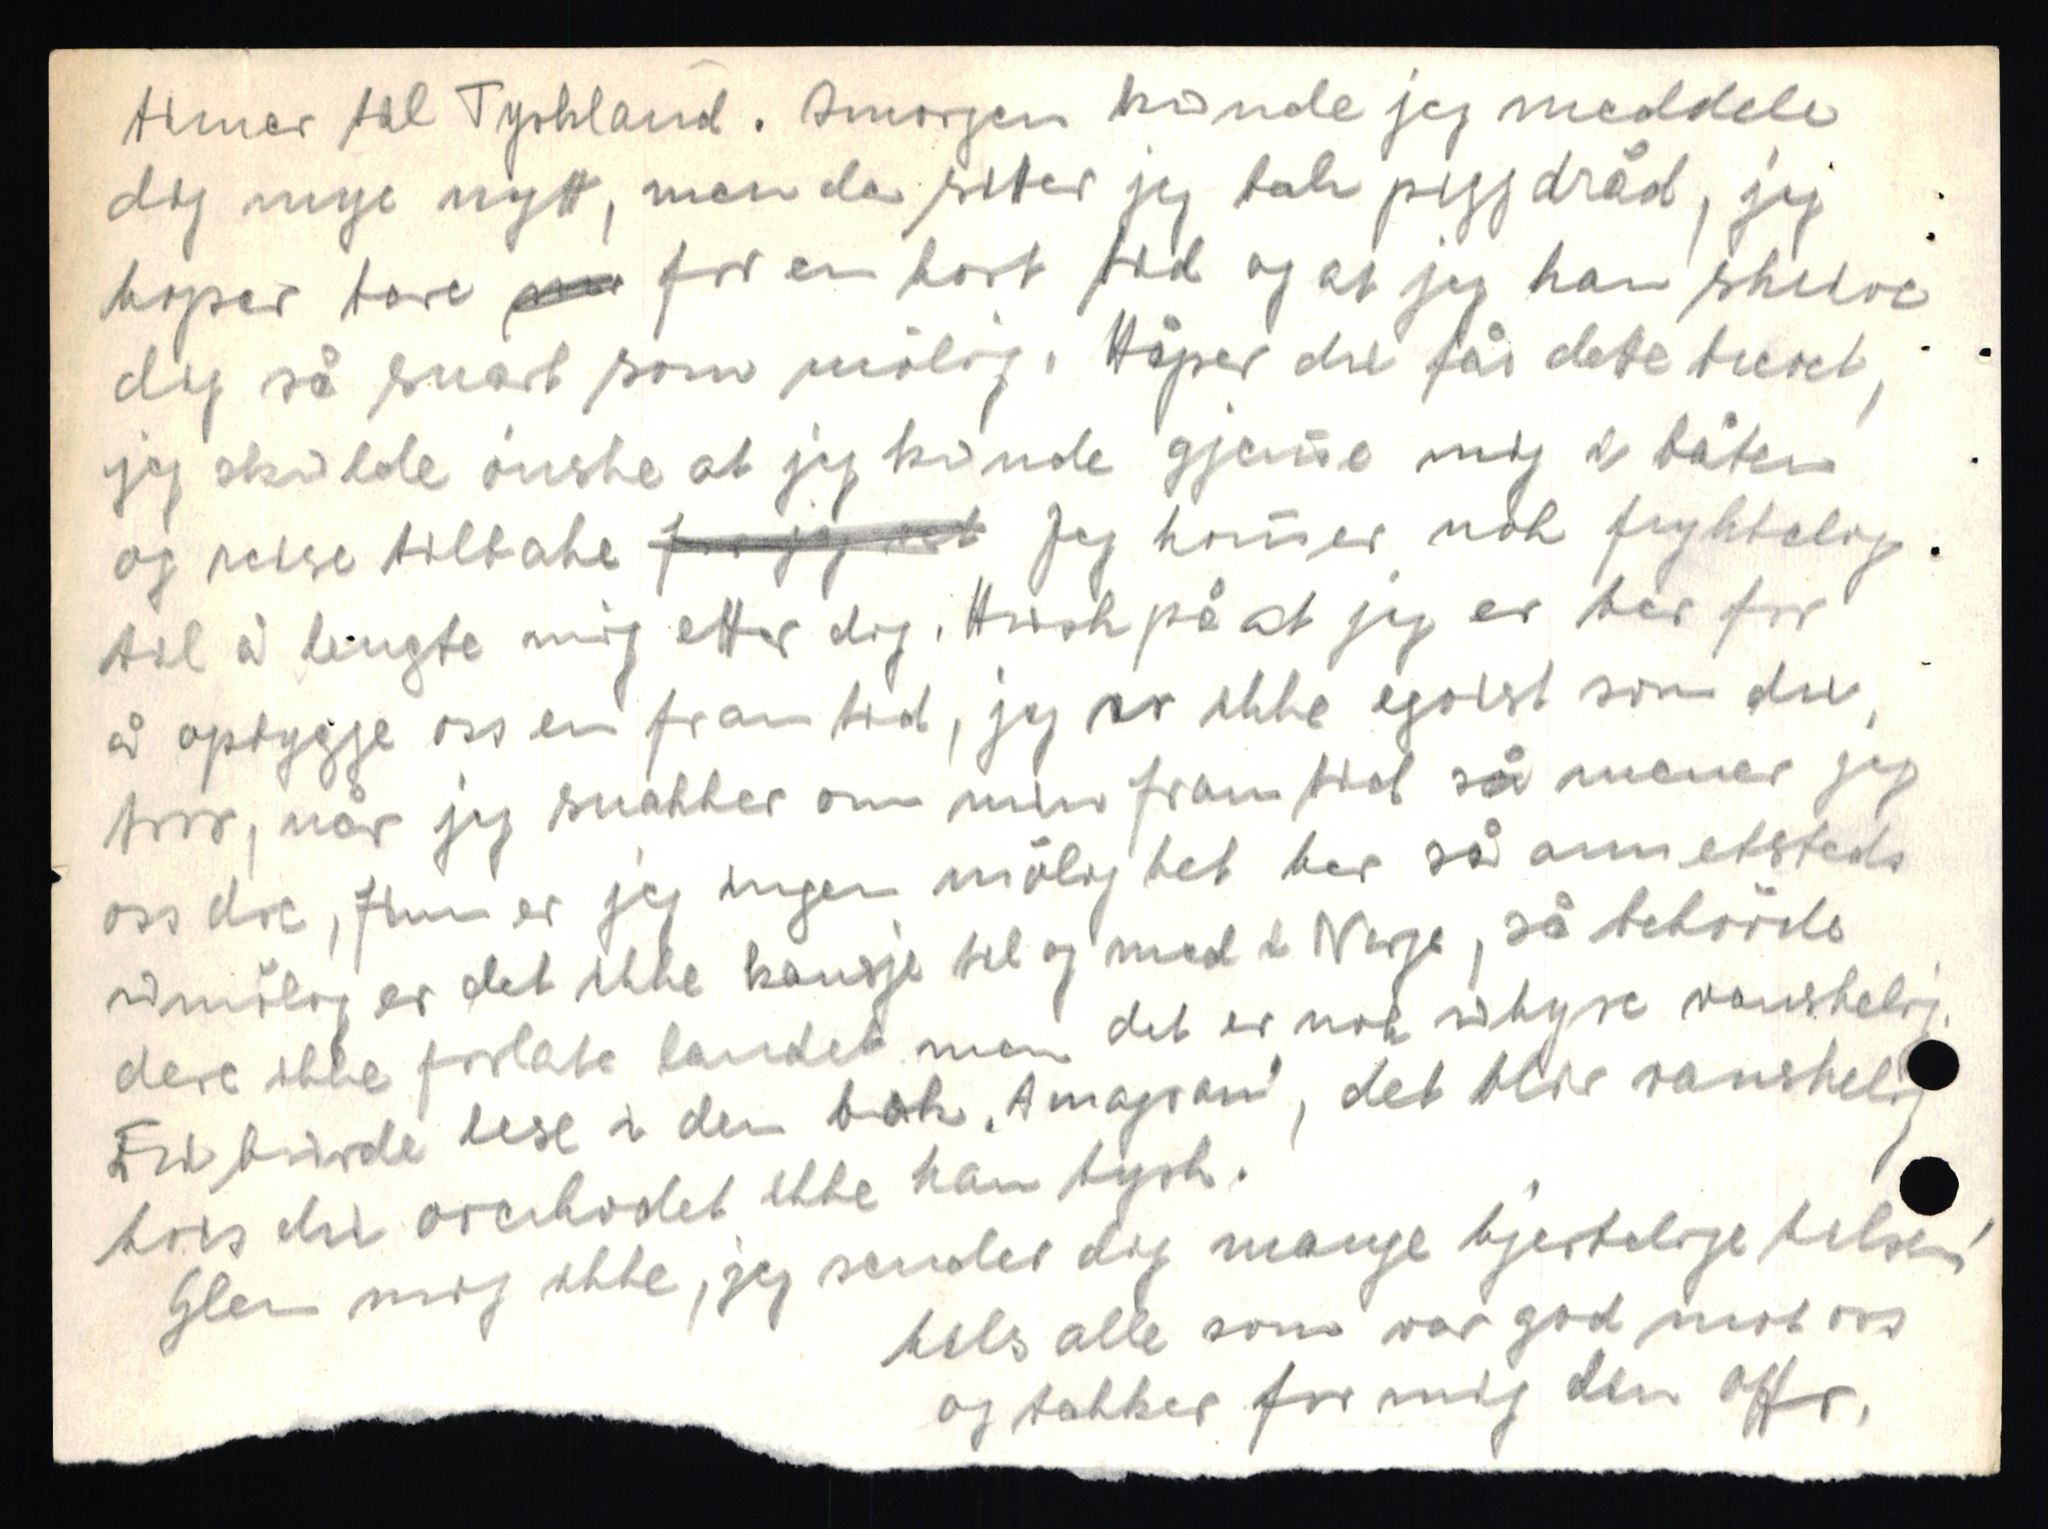 timer til Tyskland. Imorgen kunde jeg meddele
dig mye nytt, men da siter jeg bak piggdråd, jeg
hoper bare for en kort tid og at jeg kan skrive
dig så snart som mölig. Håper du får dete brevet,
jeg skulde önske at jeg kunde gjem̄e mig i båten
og reise tilbake Jeg kom̄er nok fryktelig
til å lengte mig etter dig. Husk på at jeg er her for
å opbygge oss en framtid, jeg er ikke egoist som du,
tror, når jeg snakker om min framtid så mener jeg
oss dre, finner jeg ingen mölighet her så annetsteds
umölig er det ikke kansje til og med i Norge, så behövde
dere ikke forlate landet men det er nok uhyre vanskelig.
Du burde lese i den bok "Amagrani", det blir vanskelig
hvis du overhodet ikke kan tysk.
Glem mig ikke, jeg sender dig mange hjertelige hilsen
hils alle som var god mot oss
og takker for mig den offr.